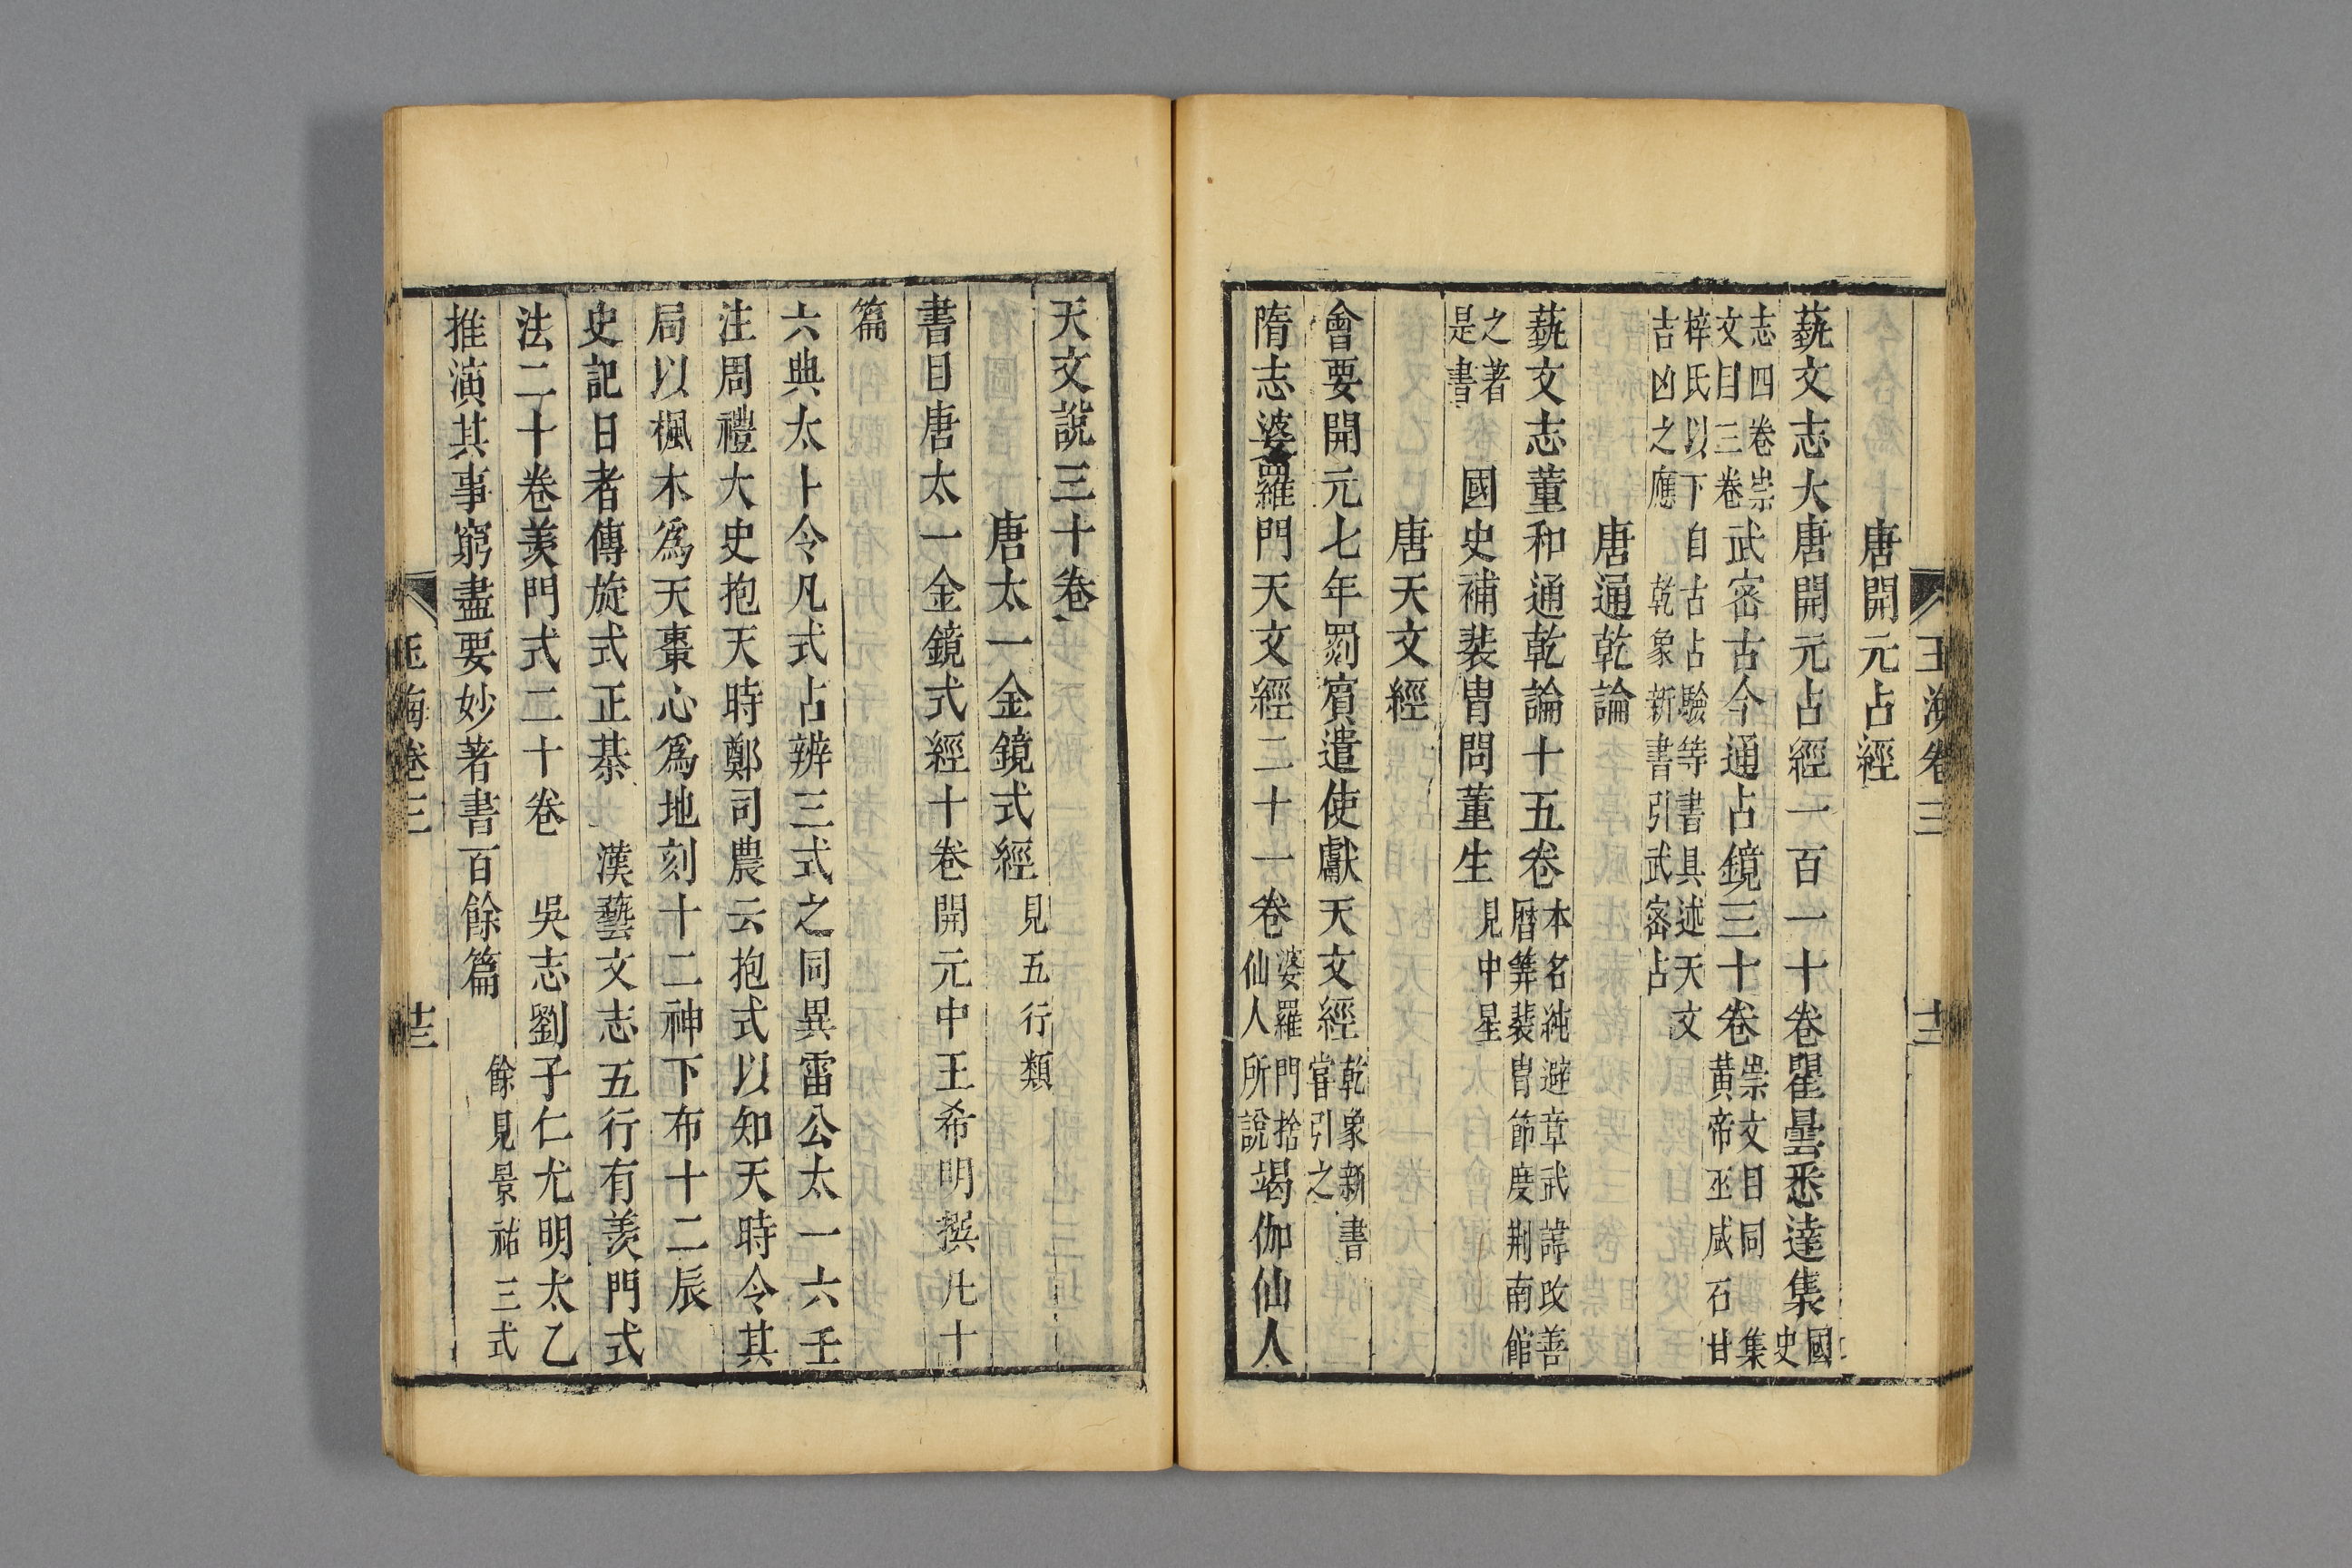 玉海卷三
十三
唐開元占經
蓺文志大唐開元占經一百一十卷瞿曇悉達集國史
志四卷崇文目三卷武密古今通占鏡三十卷崇文目同集黃帝巫咸石甘
梓氏以下自古占驗等書具述天文吉凶之應乾象新書引武密占
唐通乾論
蓺文志董和通乾論十五卷本名純避章武諱改善曆筭裴胄節度荆南館
之著是書國史補裴胄問董生見中星
唐天文經
會要開元七年罽賓遣使獻天文經乾象新書嘗引之
隋志婆羅門天文經二十一卷婆羅門捨仙人所說竭伽仙人
天文說三十卷
唐太一金鏡式經見五行類
書目唐太一金鏡式經十卷開元中王希明撰凡十
篇
六典太卜令凡式占辨三式之同異雷公太一六壬
注周禮大史抱天時鄭司農云抱式以知天時令其
局以楓木爲天棗心爲地刻十二神下布十二辰
史記日者傳旋式正棊漢藝文志五行有羨門式
法二十卷羨門式二十卷吳志劉子仁尤明太乙
推演其事窮盡要妙著書百餘篇餘見景祐三式
玉海卷三
十三